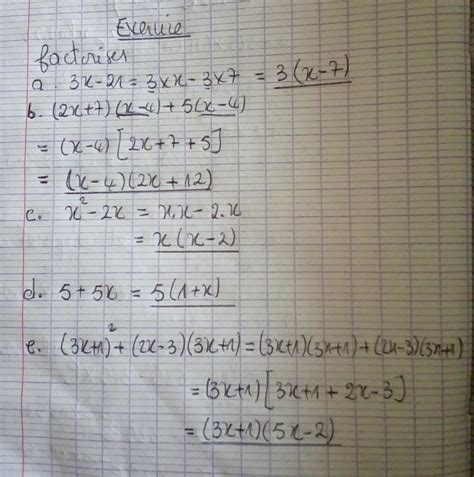 Exercice
factoriser
a. 3x-21 = 3×x-3×7 = 3(x-7)
b. (2x+7)(x-4)+5(x-4)
= (x-4)[2x+7+5]
= (x-4)(2x+12)
c. x²-2x = x.x-2.x
= x(x-2)
d. 5+5x = 5(1+x)
e. (3x+1)²+(2x-3)(3x+1) = (3x+1)(3x+1)+(2x-3)(3x+1)
= (3x+1)[3x+1+2x-3]
= (3x+1)(5x-2)